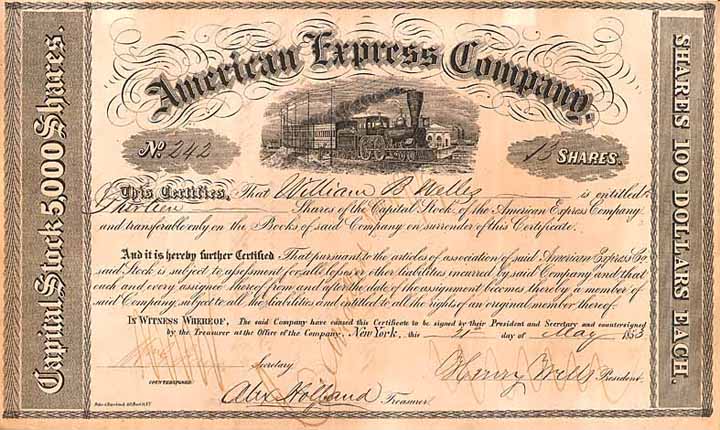 American Express Company.
Capital Stock 5,000 Shares.
SHARES 100 DOLLARS EACH.
No. 242
13 SHARES.
This Certifies, That William B Wells is entitled to
Thirteen Shares of the Capital Stock of the American Express Company
and transferable only on the Books of said Company on surrender of this Certificate.
And it is hereby further Certified That pursuant to the articles of association of said American Express Co
said Stock is subject to assessment for all losses or other liabilities incurred by said Company and that
each and every assignee thereof from and after the date of the assignment becomes thereby a member of
said Company, subject to all the liabilities and entitled to all the rights of an original member thereof.
IN WITNESS WHEREOF, The said Company have caused this Certificate to be signed by their President and Secretary and countersigned
by the Treasurer at the Office of the Company, New York, this 21st day of May 1853
Secretary. Henry Wells President
COUNTERSIGNED
Alex Holland Treasurer